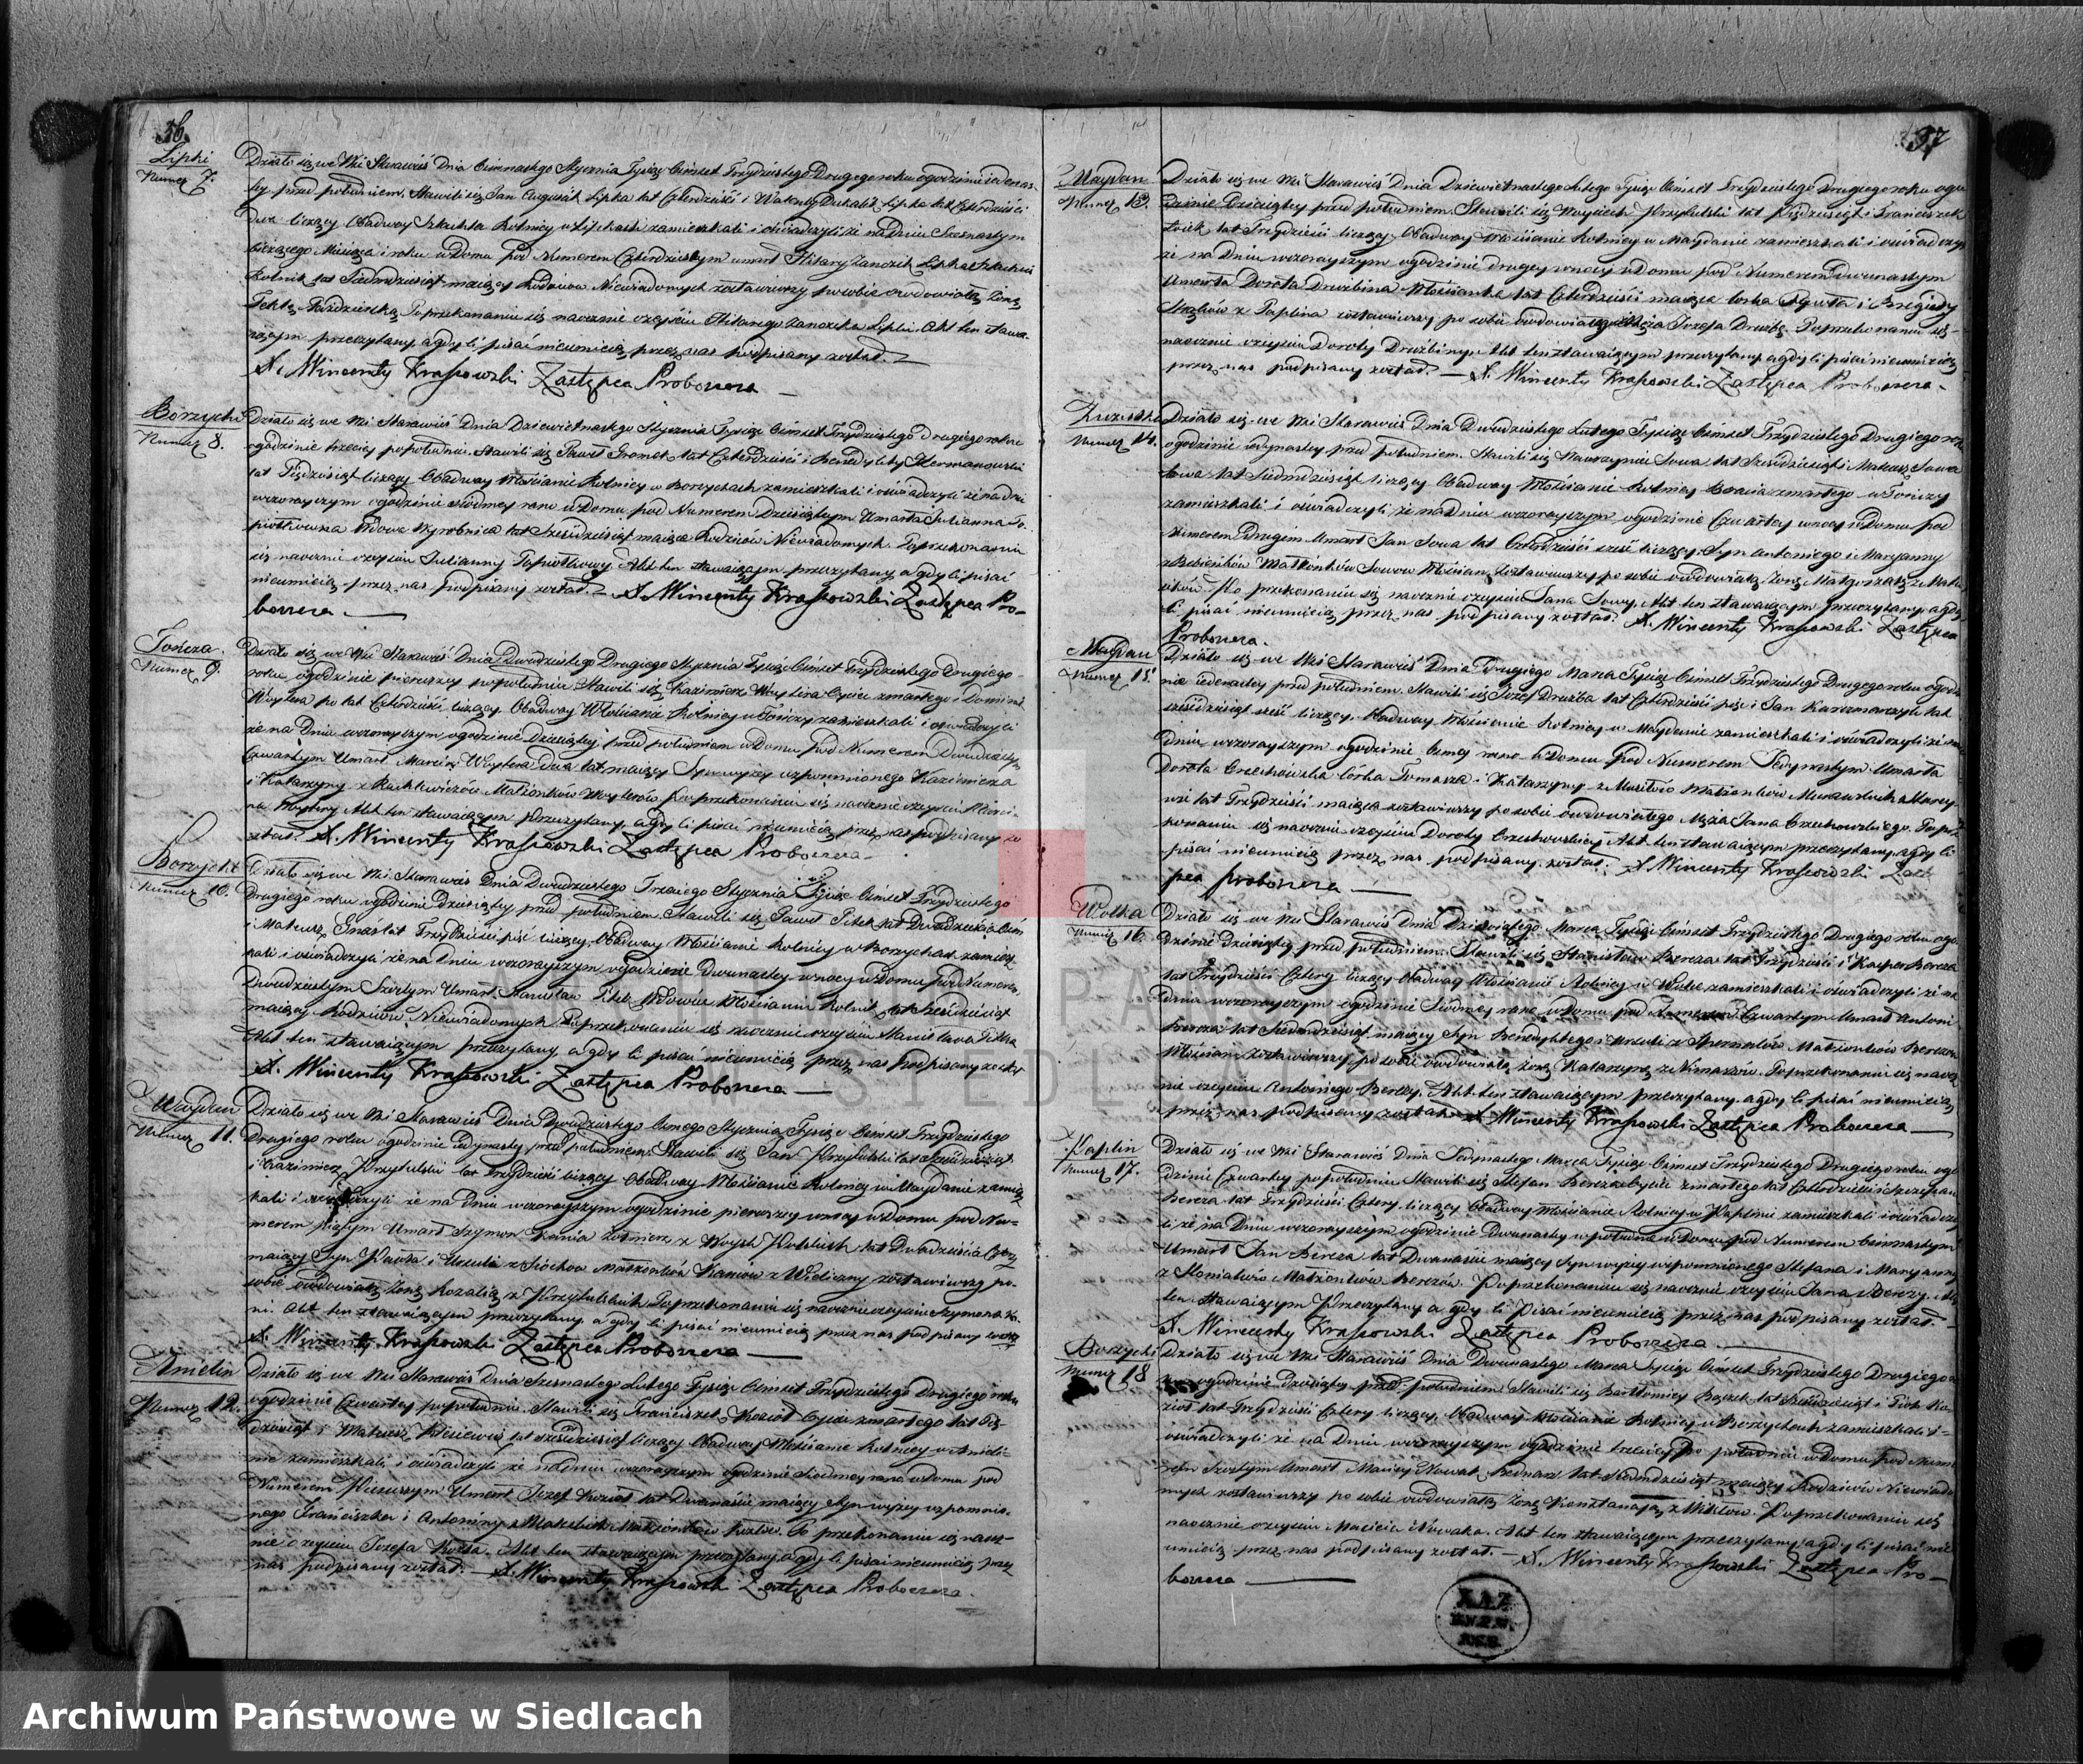 36.
Lipki
Numer 7.
Działo się we Wsi Starawieś Dnia Ośmnastego Stycznia Tysiąc Ośmset Trzydziestego Drugiego roku ogodzinie iedenas-
tey przed południem. Stawili się Jan August Lipka lat Czterdzieści i Walenty Lipka lat Czterdzieści
dwa liczący Obadway Szlachta Rolnicy w Lipkach zamieszkali i oświadczyli że na dniu Szesnastym
bieżącego Miesiąca i roku w Domu pod Numerem Czterdziestym umarł Hilary Lipka Szlachcic
Rolnik lat Siedmdziesiąt maiący Rodziców Niewiadomych zostawiwszy po sobie owdowiałą Żonę
Teklę Po przekonaniu się naocznie o zejściu Hilarego Lipki. Akt ten stawa-
iącym przeczytany, a gdy li pisać nieumieią przez nas podpisany został. —
X. Wincenty Krassowski Zastępca Proboszcza —
Borzychy
Numer 8.
Działo się we Wsi Starawieś Dnia Dziewietnastego Stycznia Tysiąc Ośmset Trzydziestego Drugiego roku
ogodzinie trzeciey popołudniu. Stawili się Paweł Gromek lat Czterdzieści i Benedykt Hermanowski
lat Pięćdziesiąt liczący Obadway Włościanie Rolnicy w Borzychach zamieszkali i oświadczyli że na dniu
wczorayszym ogodzinie siódmey rano w Domu pod Numerem Dziesiątym Umarła Julianna
Wdowa Wyrobnica lat Sześćdziesiąt maiąca Rodziców Niewiadomych. Po przekonaniu
się naocznie o zejściu Julianny Akt ten stawaiącym przeczytany, a gdy li pisać
nieumieią przez nas podpisany został. — X. Wincenty Krassowski Zastępca Pro-
boszcza —
Tończa.
Numer 9.
Działo się we Wsi Starawieś Dnia Dwudziestego Drugiego Stycznia Tysiąc Ośmset Trzydziestego Drugiego
roku, ogodzinie pierwszey popołudniu Stawili się Kazimierz Woytera Oyciec zmarłego i Dominik
Woytera po lat Czterdzieści liczący, Obadway Włościanie Rolnicy w Tończy zamieszkali i oświadczyli
że na Dniu wczorayszym ogodzinie Dziesiątey przed południem w Domu pod Numerem Dwudziestym
Czwartym Umarł Marcin Woytera dwa lat maiący Syn wyżey wspomnionego Kazimierza
i Katarzyny z Małżonków Woyterów. Po przekonaniu się naocznie o zejściu Marci-
na Woytery Akt ten stawaiącym przeczytany, a gdy li pisać nieumieią przez nas podpisany zo-
stał. X. Wincenty Krassowski Zastępca Proboszcza —
Borzychy
Numer 10.
Działo się we Wsi Starawieś Dnia Dwudziestego Trzeciego Stycznia Tysiąc Ośmset Trzydziestego
Drugiego roku ogodzinie Dziesiątey przed południem. Stawili się Paweł Pitek lat Dwadzieścia Ośm
i Mateusz Trzydzieści pięć liczący, Obadway Włościanie Rolnicy w Borzychach zamiesz-
kali i oświadczyli że na Dniu wczorayszym ogodzinie Dwunastey wnocy w Domu pod Numerem
Dwudziestym Szóstym Umarł Stanisław Pitek Wdowiec Włościanin Rolnik lat Sześćdziesiąt
maiący Rodziców Niewiadomych. Po przekonaniu się naocznie o zejściu Stanisława Pitka
Akt ten stawaiącym przeczytany a gdy li pisać nieumieią przez nas podpisany został
X. Wincenty Krassowski Zastępca Proboszcza —
Maydan
Numer 11.
Działo się we Wsi Starawieś Dnia Dwudziestego Osmego Stycznia Tysiąc Ośmset Trzydziestego
Drugiego roku ogodzinie iedynastey przed południem. Stawili się Jan Przybulski lat
i Kazimierz Przybulski lat Trzydzieści liczący Obadway Włościanie Rolnicy w Maydanie zamiesz-
kali i oświadczyli że na Dniu wczorayszym ogodzinie pierwszey wnocy w Domu pod Nu-
merem piątym Umarł Szymon Kania Żołnierz z Woysk Polskich lat Dwadzieścia
maiący Syn Pawła i Urszuli z Małżonków Kaniów z Wieliczny zostawiwszy po
sobie owdowiałą Żonę Rozalią z Przybulskich Po przekonaniu się naocznie o zejściu Szymona Ka-
ni. Akt ten stawaiącym przeczytany, a gdy li pisać nieumieią przez nas podpisany został
X. Wincenty Krassowski Zastępca Proboszcza —
Amelin
Numer 12.
Działo się we Wsi Starawieś Dnia Szesnastego Lutego Tysiąc Ośmset Trzydziestego Drugiego roku
ogodzinie Czwartey popołudniu. Stawili się Franciszek Kozioł Oyciec zmarłego lat Pięć-
dziesiąt i Mateusz lat sześćdziesiąt liczący Obadway Włościanie Rolnicy w Ameli-
nie zamieszkali i oświadczyli że na dniu wczorayszym ogodzinie Siedmey rano w domu pod
Numerem Pierwszym Umarł Jozef Kozioł lat Dwanaście maiący Syn wyżey wspomnio-
nego Franciszka i Antoniny z Małżonków Kozłów. Po przekonaniu się naocz-
nie o zejściu Jozefa Kozła. Akt ten stawaiącym przeczytany, a gdy li pisać nieumieią przez
nas podpisany został. — X. Wincenty Krassowski Zastępca Proboszcza.
37
Maydan
Numer 13.
Działo się we Wsi Starawieś Dnia Dziewietnastego Lutego Tysiąc Ośmset Trzydziestego Drugiego roku ogo-
dzinie Dziesiątey przed południem. Stawili się Woyciech Przybulski lat Pięćdziesiąt i Franciszek
lat Trzydzieści liczący. Obadway Włościanie Rolnicy w Maydanie zamieszkali i oświadczyli
że na Dniu wczorayszym ogodzinie drugiey wnocy w Domu pod Numerem Dwunastym
Umarła Dorota Drużbina Włościanka lat Czterdzieści maiąca Córka i Brygidy
z Paplina zostawiwszy po sobie owdowiałego Męża Jozefa Drużbę. Po przekonaniu się
naocznie o zejściu Doroty Drużbiny. Akt ten stawaiącym przeczytany a gdy li pisać nieumieią
przez nas podpisany został. — X. Wincenty Krassowski Zastępca Proboszcza.
Numer 14.
Działo się we Wsi Starawieś Dnia Dwudziestego Lutego Tysiąc Ośmset Trzydziestego Drugiego roku
ogodzinie iedynastey przed południem. Stawili się Wawrzyniec Sowa lat Sześćdziesiąt i Mateusz Sowa
lat Siedmdziesiąt liczący Obadway Włościanie Rolnicy Bracia zmarłego w Tończy
zamieszkali i oświadczyli że na dniu wczorayszym ogodzinie Czwartey wnocy w Domu pod
Numerem Drugim Umarł Jan Sowa lat Czterdzieści sześć liczący, Syn Antoniego i Maryanny
z Małżonków Sowów Włościan, zostawiwszy po sobie owdowiałą Żonę Małgorzatę
Po przekonaniu się naocznie o zejściu Jana Sowy. Akt ten stawaiącym przeczytany, a gdy
li pisać nieumieią przez nas podpisany został. X. Wincenty Krassowski Zastępca
Proboszcza.
Maydan
Numer 15.
Działo się we Wsi Starawieś Dnia Drugiego Marca Tysiąc Ośmset Trzydziestego Drugiego roku ogodzi-
nie iedenastey przed południem. Stawili się Jozef Drużba lat Czterdzieści pięć i Jan Karczmarczyk lat
sześćdziesiąt sześć liczący, Obadway Włościanie Rolnicy w Maydanie zamieszkali i oświadczyli że na
Dniu wczorayszym ogodzinie Osmey rano w Domu pod Numerem Jedynastym Umarła
Dorota Orzechowska Córka Tomasza i Katarzyny z Małżonków
lat Trzydzieści maiąca zostawiwszy po sobie owdowiałego Męża Jana Orzechowskiego. Po prze-
konaniu się naocznie o zejściu Doroty Orzechowskiey Akt ten stawaiącym przeczytany, a gdy li
pisać nieumieią przez nas podpisany został. X. Wincenty Krassowski Zast-
pca proboszcza —
Wolka
Numer 16.
Działo się we Wsi Starawieś Dnia Dziewiątego Marca Tysiąc Ośmset Trzydziestego Drugiego roku ogo-
dzinie Dziesiątey przed południem. Stawili się Stanisław Bereza lat Trzydzieści i Kasper Bereza
lat Trzydzieści Cztery liczący Obadway Włościanie Rolnicy w Wolce zamieszkali i oświadczyli że na
dniu wczorayszym ogodzinie Siodmey rano w domu pod Numerem Czwartym Umarł Antoni
Bereza lat Siedmdziesiąt maiący Syn Benedykta i Urszuli z Małżonków Berezów
Włościan zostawiwszy po sobie owdowiałą żonę Katarzynę z Po przekonaniu się naocz-
nie o zejściu Antoniego Berezy. Akt ten stawaiącym przeczytany, a gdy li pisać nieumieią
przez nas podpisany został. — X. Wincenty Krassowski Zastępca Proboszcza —
Paplin
Numer 17.
Działo się we Wsi Starawieś Dnia Marca Tysiąc Ośmset Trzydziestego Drugiego roku ogo-
dzinie Czwartey popołudniu Stawili się Stefan Bereza Oyciec zmarłego lat Czterdzieści i Szczepan
Bereza lat Trzydzieści Cztery liczący Obadway Włościanie Rolnicy w Paplinie zamieszkali i oświadczy-
li że na Dniu wczorayszym ogodzinie Dwunastey w południe w Domu pod Numerem Osimnastym
Umarł Jan Bereza lat Dwanaście maiący Syn wyżey wspomnionego Stefana i Maryanny
z Małżonków Berezów. Po przekonaniu się naocznie o zejściu Jana Berezy. Akt
ten stawaiącym Przeczytany a gdy li Pisać nieumieią przez nas podpisany został. —
X. Wincenty Krassowski Zastępca Proboszcza —
Borzychy
Numer 18
Działo się we Wsi Starawieś Dnia Dwunastego Marca Tysiąc Ośmset Trzydziestego Drugiego
ogodzinie Dziesiątey przed południem. Stawili się Bartłomiey lat Sześćdziesiąt i Piotr Ko-
zioł lat Trzydzieści Cztery liczący, Obadway Włościanie Rolnicy w Borzychach zamieszkali i
oświadczyli że na Dniu wczorayszym ogodzinie trzeciey po południu w Domu pod Nume-
rem Szóstym Umarł Maciey Nowak, Bednarz lat Siedmdziesiąt maiący Rodziców Niewiado-
mych zostawiwszy po sobie owdowiałą Żonę Konstancyą z Po przekonaniu się
naocznie o zejściu Macieia Nowaka. Akt ten stawaiącym przeczytany, a gdy li pisać nie-
umieią przez nas podpisany został. — X. Wincenty Krassowski Zastępca Pro-
boszcza —
Archiwum Państwowe w Siedlcach